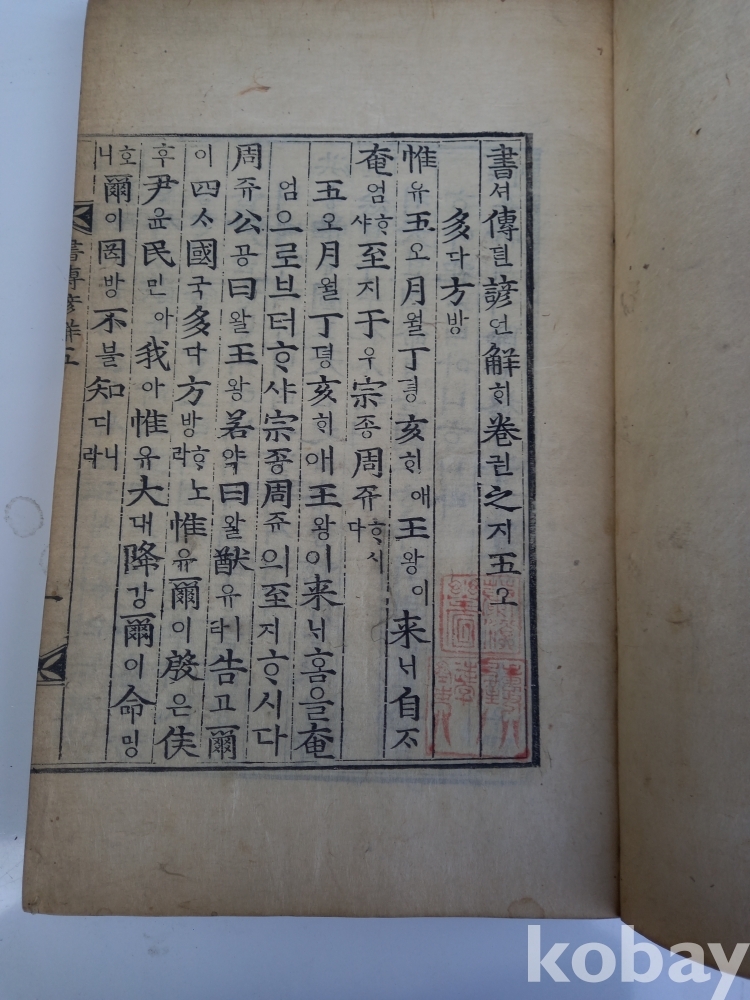 書셔傳뎐諺언解ᄒᆡ卷권之지五오
多다方방
惟유五오月월丁뎡亥ᄒᆡ애王왕이来ᄂᆡ自ᄌᆞ
奄엄ᄒᆞ샤至지于우宗종周쥬ᄒᆞ시다
五오月월丁뎡亥ᄒᆡ애王왕이来ᄂᆡ홈을奄
엄으로브터ᄒᆞ샤宗종周쥬의至지ᄒᆞ시다
周쥬公공曰왈王왕若약曰왈猷유ㅣ라告고爾
이四ᄉᆞ國국多다方방ᄒᆞ노라惟유爾이殷은侯
후尹윤民민아我아惟유大대降강爾이命명
호니爾이罔망不블知디니라
書傳諺解五
kobay